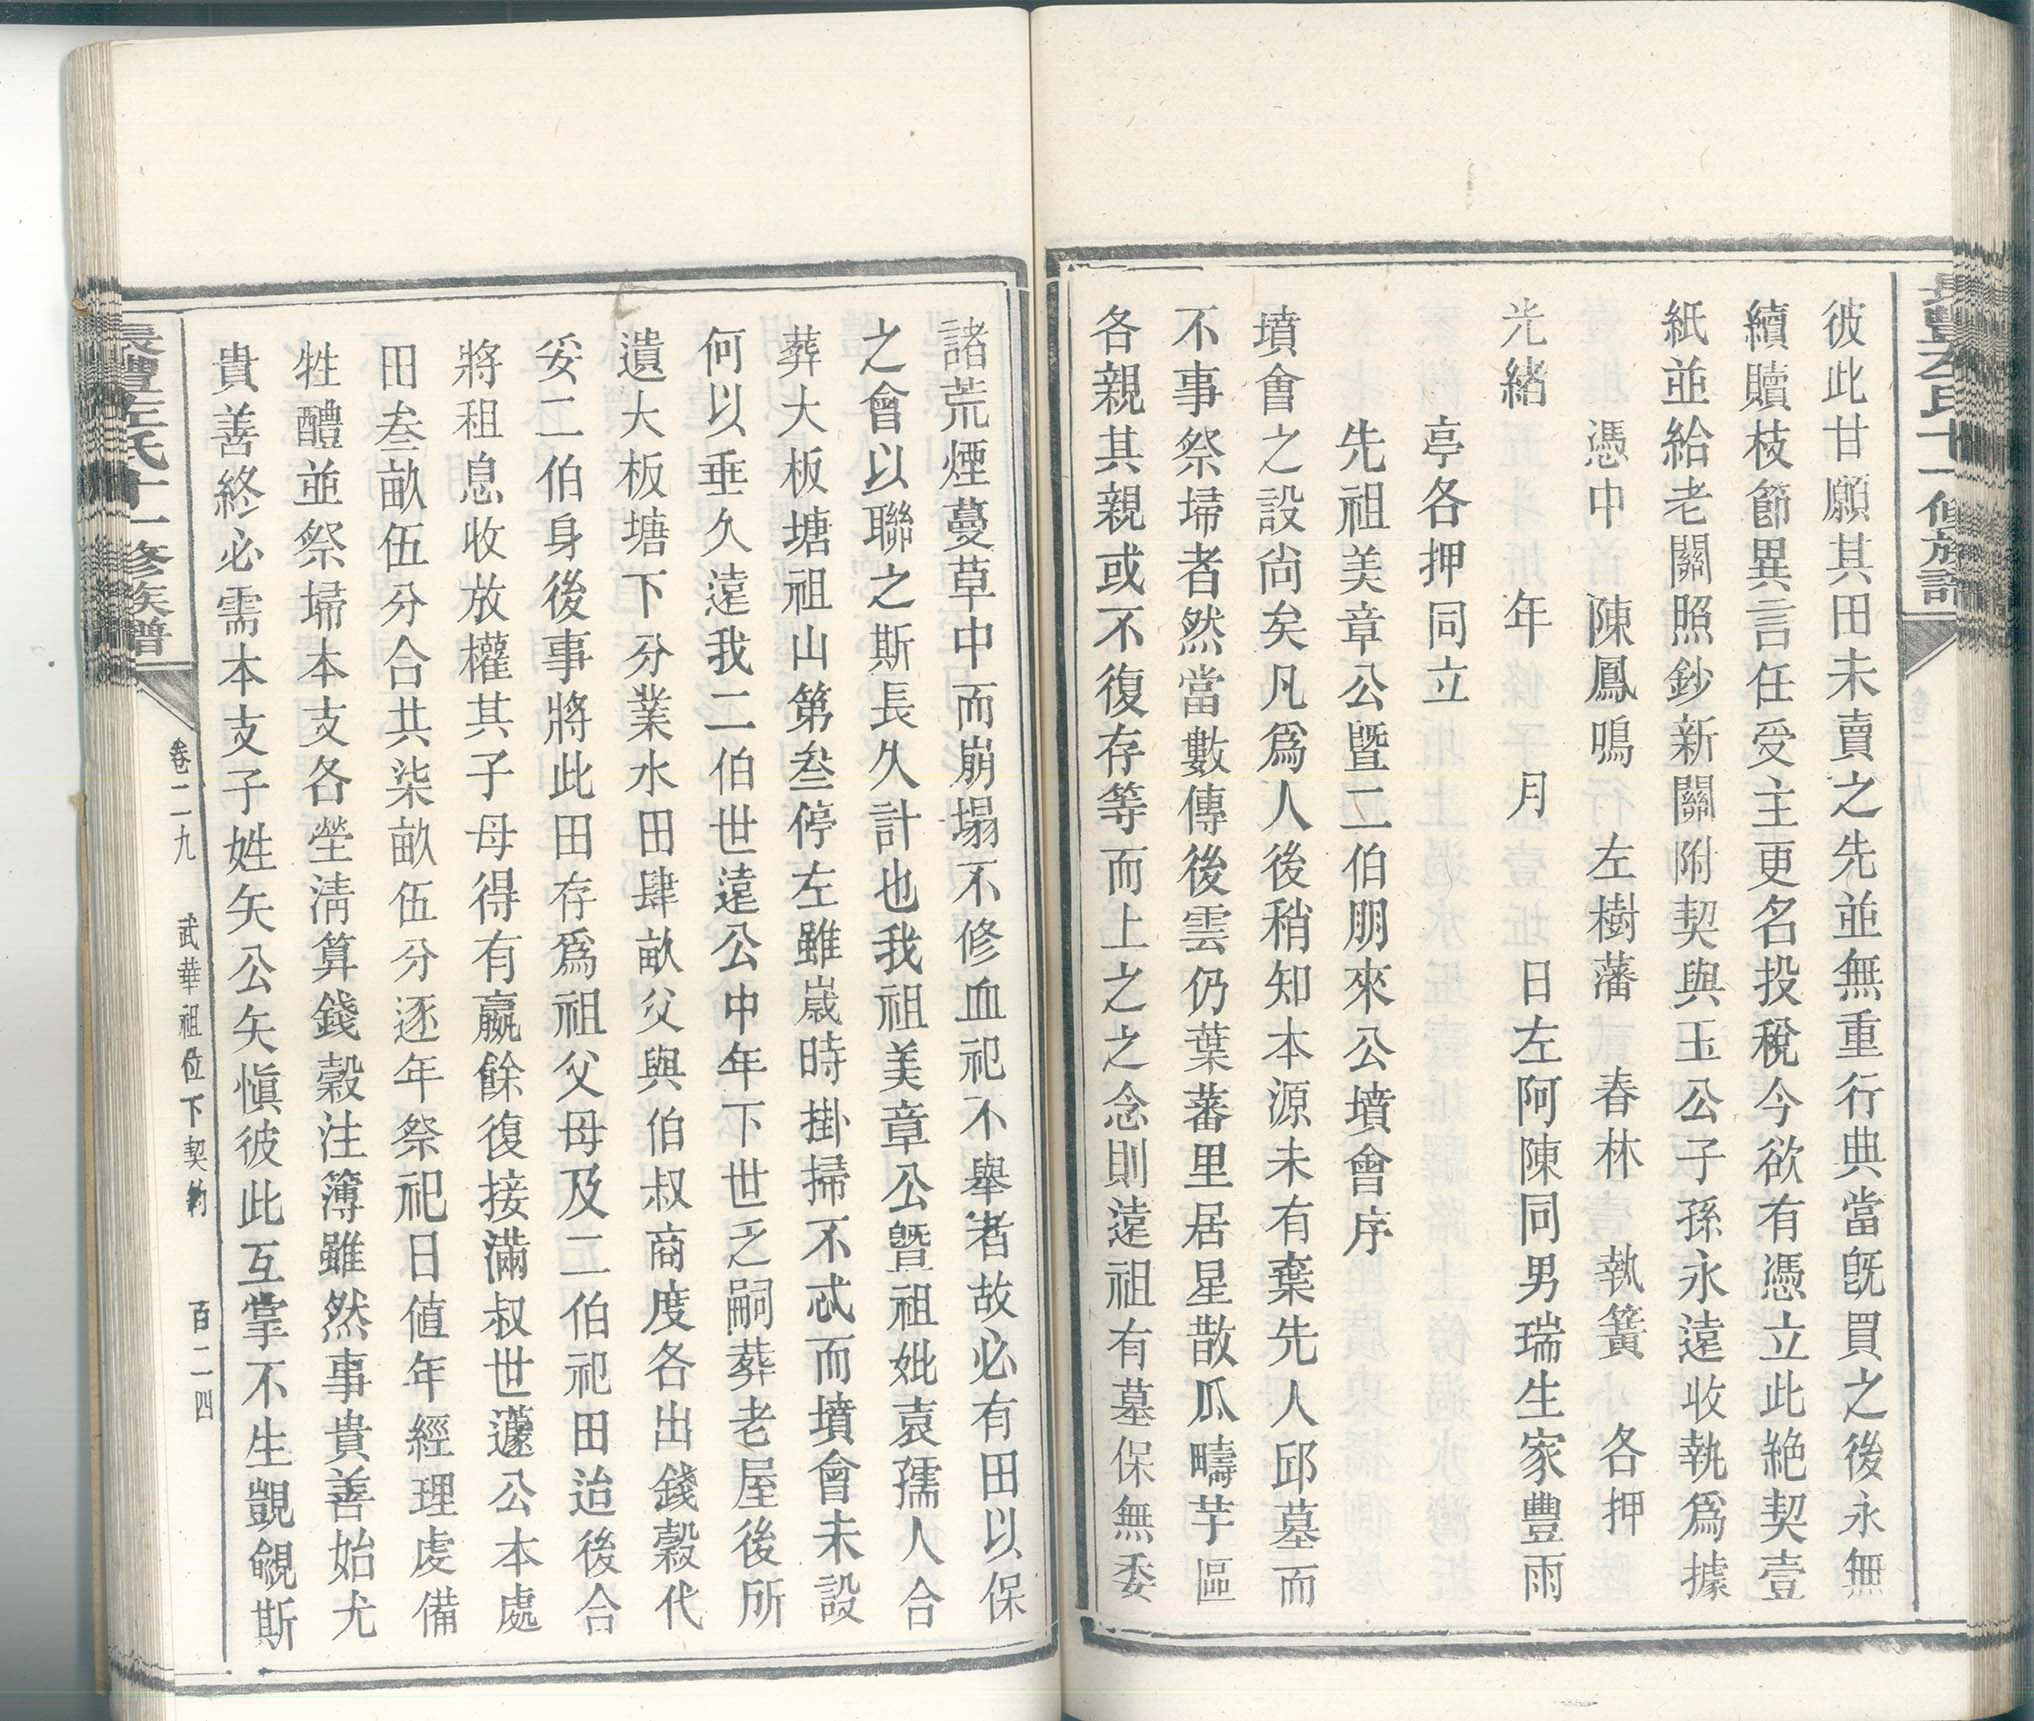 彼此甘願其田未賣之先並無重行典當旣買之後永無
續贖枝節異言任受主更名投稅今欲有憑立此絶契壹
紙並給老關照鈔新關附契與玉公子孫永遠收執爲據
憑中 陳鳳鳴 左樹藩 春林 執簧 各押
光緒 年 月 日左阿陳同男瑞生家豐雨
亭各押同立
先祖美章公暨二伯朋來公墳會序
墳會之設尙矣凡爲人後稍知本源未有棄先人邱墓而
不事祭埽者然當數傳後雲仍葉蕃里居星散瓜疇芋區
各親其親或不復存等而上之之念則遠祖有墓保無委
諸荒煙蔓草中而崩塌不修血祀不舉者故必有田以保
之會以聯之斯長久計也我祖美章公暨祖妣袁孺人合
葬大板塘祖山第叁停左雖歲時掛掃不忒而墳會未設
何以垂久遠我二伯世遠公中年下世乏嗣葬老屋後所
遺大板塘下分業水田肆畝父與伯叔商度各出錢穀代
妥二伯身後事將此田存爲祖父母及二伯祀田迨後合
將租息收放權其子母得有贏餘復接滿叔世蘧公本處
田叁畝伍分合共柒畝伍分逐年祭祀日值年經理虔備
牲醴並祭埽本支各塋淸算錢穀注簿雖然事貴善始尤
貴善終必需本支子姓矢公矢愼彼此互掌不生覬覦斯
長醴左氏十一修族譜
卷二九 武華祖位下契約 百二四